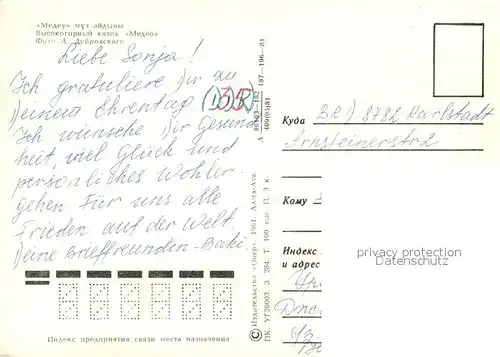 «Медеу» мұз айдыны
Высокогорный каток «Медео»
Фото А. Дубровского
Liebe Sonja!
Ich gratuliere Dir zu
Deinem Ehrentag
Ich wünsche Dir Gesund
heit, viel Glück und
persönliches Wohler-
gehen Für uns alle
Frieden auf der Welt.
Deine Brieffreunden-Babi.
Индекс предприятия связи места назначения
© Издательство «Өнер», 1981. Алма-Ата.
ПК. УГ20003 З. 284 Т. 100 тыс. Ц. 3 к.
187—196—81
Куда BRD 8782 Karlstadt
Arnsteinerstr 2
Кому
Индекс
и адрес
privacy protection
Datenschutz